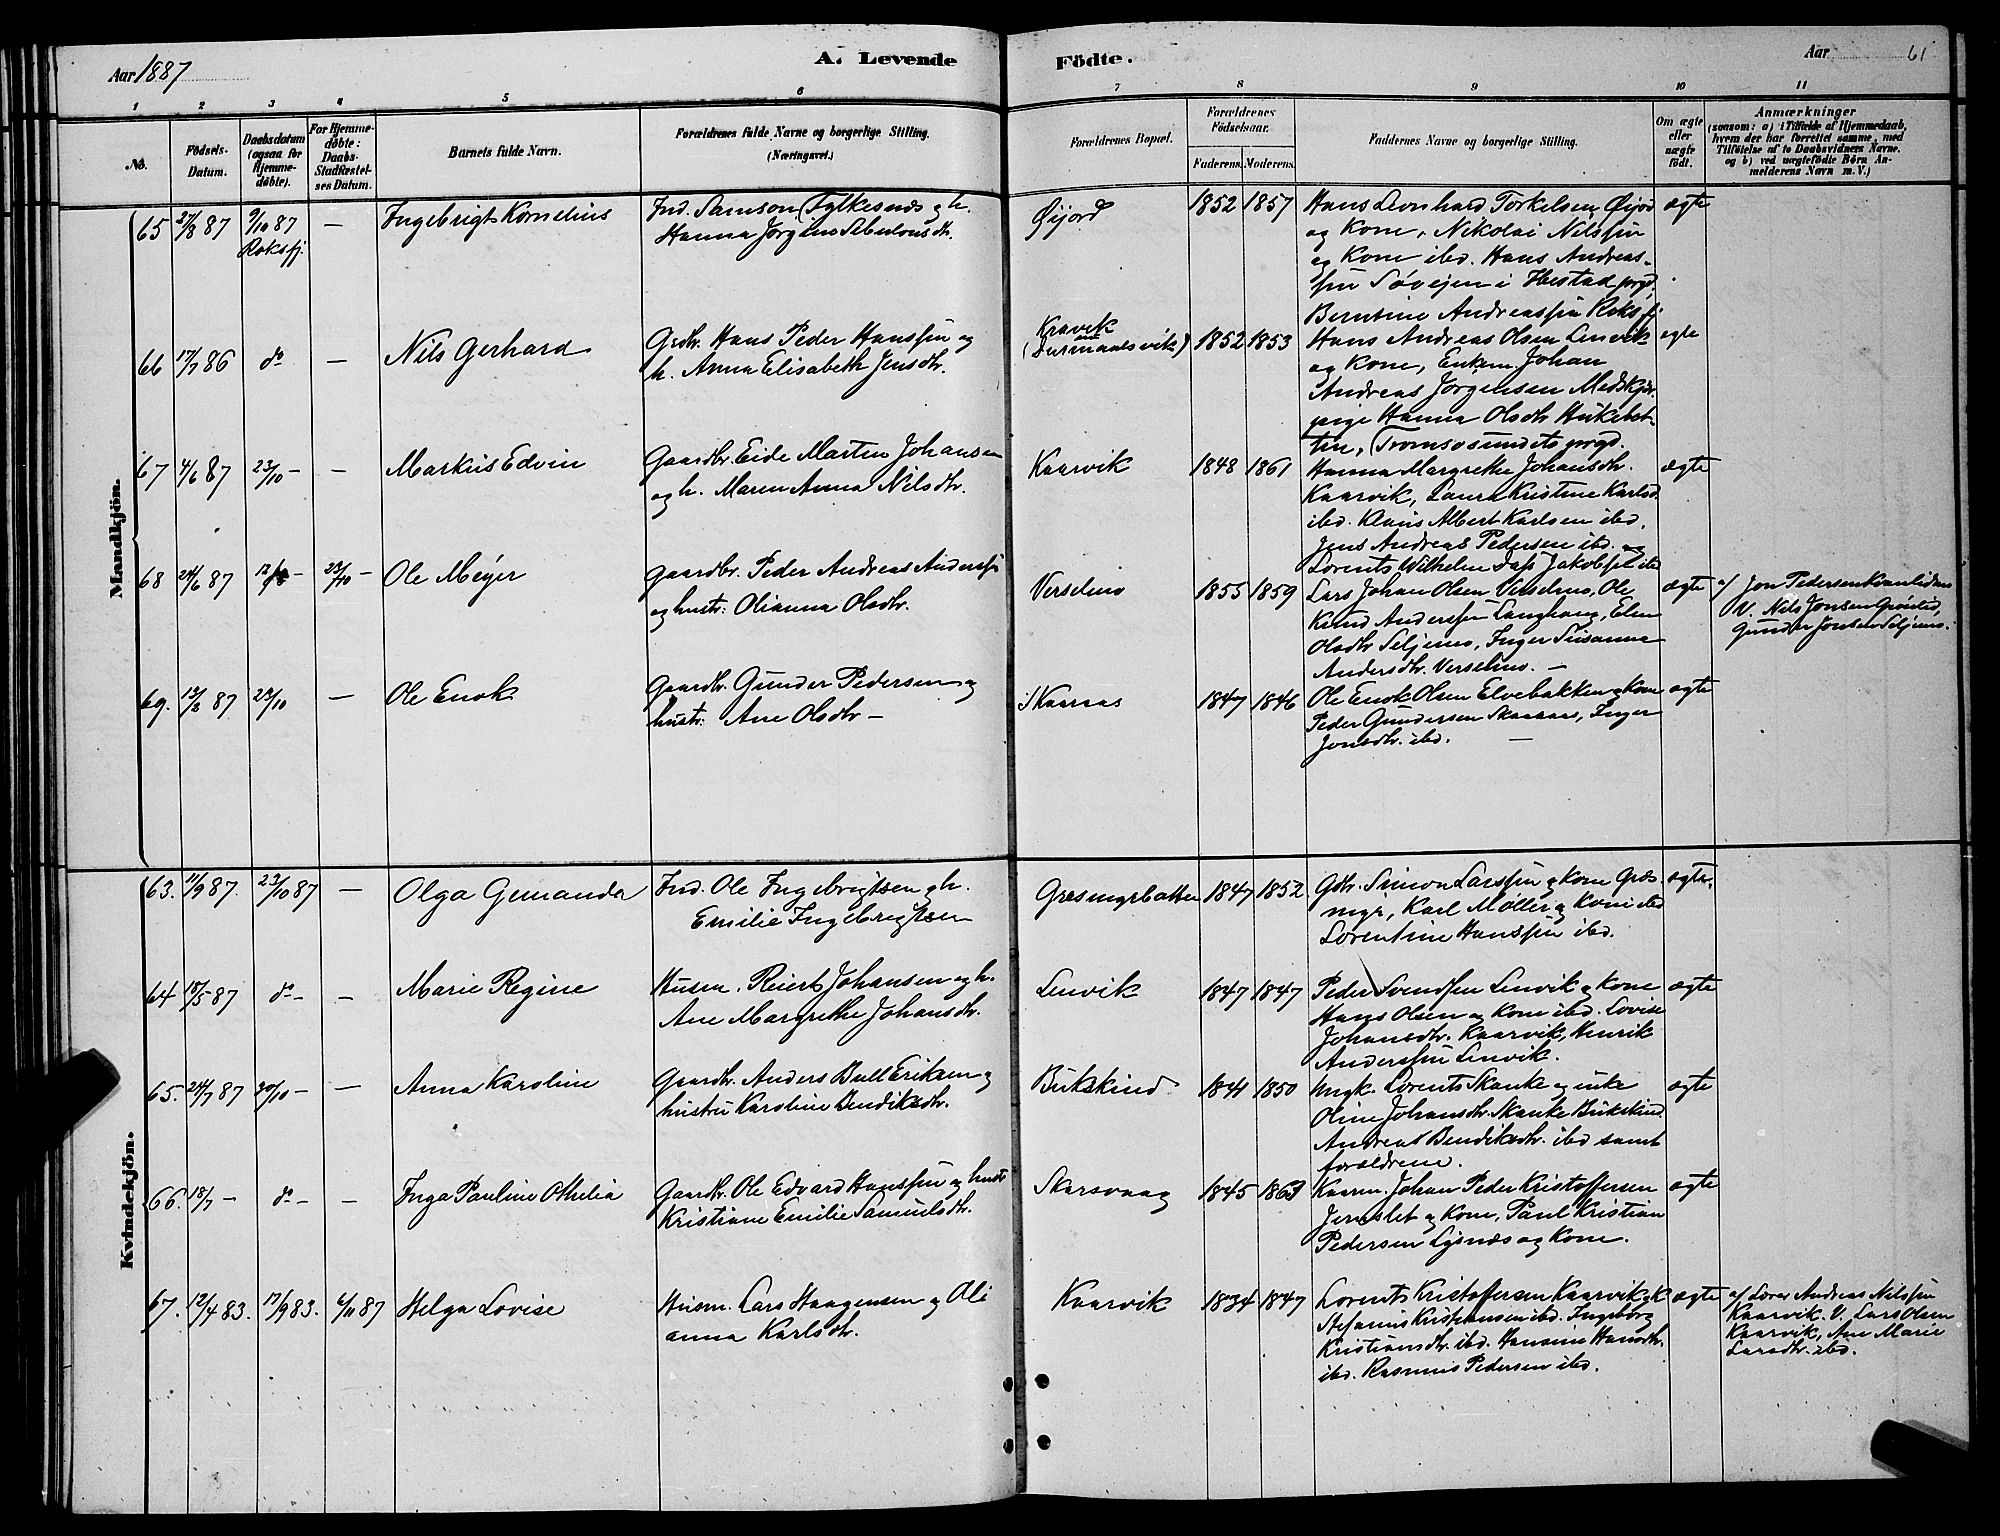 Aar 1887
A. Levende Födte.
Aar 61
1 2 3 4 5 6 7 8 9 10 11
No.
Födsels-Datum.
Daabsdatum (ogsaa for Hjemmedöbte).
For Hjemmedöbte: Daabs-Stadfæstelses Datum.
Barnets fulde Navn.
Forældrenes fulde Navne og borgerlige Stilling. (Næringsvei.)
Forældrenes Bopæl.
Forældrenes Födselsaar.
Faderens. Moderens.
Faddernes Navne og borgerlige Stilling.
Om ægte eller uægte födt.
Anmærkninger
(saasom: a) i Tilfælde af Hjemmedaab,
hvem der har forrettet samme, med
Tilföielse af to Daabsvidners Navne,
og b) ved uægtefödte Börn Anmelderens Navn m. V.)
Mandkjön.
65 27/8 87 9/10 87 Roksfj. — Ingebrigt Kornelius
Ind. Samson Fylkesnæs og h.
Hanna Jørgine
Øijord 1852 1857
Hans Leonhard Torkelsen Øijord
og Kone, Nikolai Nilssen
og Kone ibd. Hans Andreas-
sen Søvejen i Ibestad prgd.
Berntine Andreassen Roksfj.
ægte
66 17/7 86 do — Nils Gerhard
Grdbr. Hans Peder Hanssen og
h. Anna Elisabeth Jensdtr.
Kravik 1852 1853
Hans Andreas Olsen Lenvik
og Kone, Enkem. Johan
Andreas Jørgensen
Hanna Olsdtr
Tromsøsundets prgd.
ægte
67 4/6 87 23/10 — — Markus Edvin
Gaardbr. Eide Marten Johansen
og h. Maren Anna Nilsdtr.
Kaarvik 1848 1861
Hanna Margrethe Johansdtr.
Kaarvik, Laura Kristine Karlsd.
ibd. Klaus Albert Karlsen ibd.
Jens Andreas Pedersen ibd. og
Lorents Wilhelm Jakobsen ibd
ægte
68 24/6 87 23/10 — Ole Meyer
Gaardbr. Peder Andreas Anderssen
og hustr: Olianna Olsdtr.
Verselmo 1855 1859
Lars Johan Olsen Verselmo, Ole
Knud Anderssen Langhaug, Elen
Olsdtr Seljemo, Inger Susanna
Andersdtr. Verselmo. —
ægte
af Jon Pedersen
V. Nils Jonsen Grønlid,
Gunder Jonsen Seljemo.
69. 13/2 87 23/10 — Ole Enok
Gaardbr. Gunder Pedersen og
hustr: Ane Olsdtr —
Skaaraas 1847 1846
Ole Enok Olsen Elvebakken og Kone
Peder Gundersen Skaaraas, Inger
Jonsdtr. ibd. —
ægte
Kvindekjön.
63. 11/9 87. 23/10 87 — Olga Gemanda
Ind. Ole Ingebrigtsen og h.
Emilie Ingebrigtsen
Græsmyrbakken 1847 1852
Gbr. Simon Larssen og Kone Græs-
myr, Karl Møller og Kone ibd
Lorentine Hanssen ibd.
ægte.
64 18/5 87 do — — Marie Regine
Husm. Reiert Johansen og h.
Ane Margrethe Johansdtr.
Lenvik 1847 1847
Peder Svendsen Lenvik og Kone
Hans Olsen og Kone ibd. Lovise
Johansdtr. Kaarvik, Henrik
Anderssen Lenvik.
ægte
65. 24/7 87 30/10 — — Anna Karoline
Gaardbr. Anders Bull Eriksen og
hustru Karoline Bendiksdtr.
Bukskind 1841 1850
Ungk. Lorents Skanke og enke
Oline Johansdtr. Skanke Bukskind.
Andrea Bendiksdtr. ibd samt
forældrene.
ægte
66. 18/7 — do — — Inga Pauline Othelia
Gaardbr. Ole Edvard Hanssen og hustr
Kristiane Emilie Samuelsdtr.
Skarsvaag 1845 1863
Kaarm. Johan Peder Kristoffersen
Jernslet og Kone, Paul Kristian
Pedersen Lysnæs og Kone.
ægte
67. 12/4 83. 17/9 83. 6/11 87 Helga Lovise
Husm. Lars Haagensen og Oli
anna Karlsdtr.
Kaarvik 1834 1847
Lorents Kristoffersen Kaarvik gk
Stefanus Kristiansen ibd. Ingeborg
Kristiansdtr. ibd. Hansine Hansdtr.
ibd. Rasmus Pedersen ibd.
ægte
af Lærer Andreas Nilssen
Kaarvik. V. Lars Olsen
Kaarvik, Ane Marie
Larsdtr. ibd.